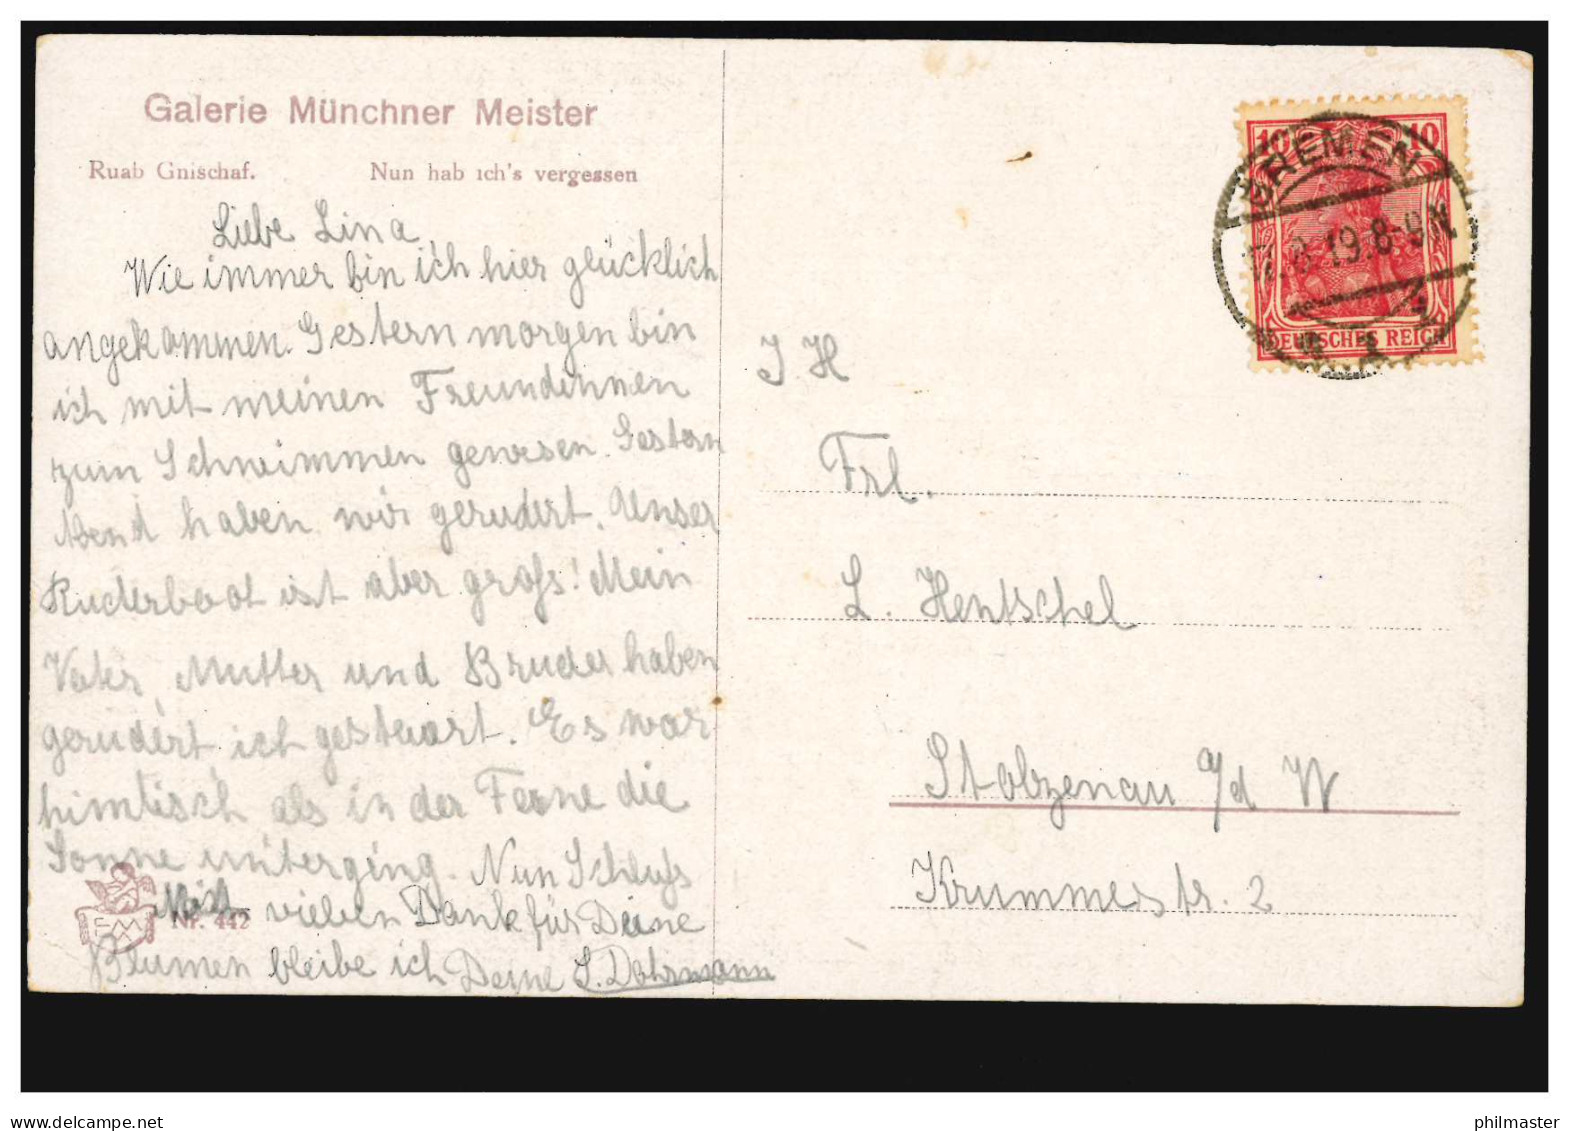 Galerie Münchner Meister
Ruab Gnischaf. Nun hab ich's vergessen
Liebe Lina
Wie immer bin ich hier glücklich
angekommen. Gestern morgen bin
ich mit meinen Freundinnen
zum Schwimmen gewesen. Gestern
Abend haben wir gerudert. Unser
Ruderboot ist aber groß! Mein
Vater, Mutter und Bruder haben
gerudert, ich gesteuert. Es war
himmlisch als in der Ferne die
Sonne unterging. Nun Schluß
Mit vielen Dank für Deine
Nr. 442
Blumen bleibe ich Deine S. Dohrmann
10 10
BREMEN
17.8.19.8-9N
DEUTSCHES REICH
J H
Frl.
L. Hentschel
Stolzenau a/d W
Krummestr. 2
www.delcampe.net
philmaster